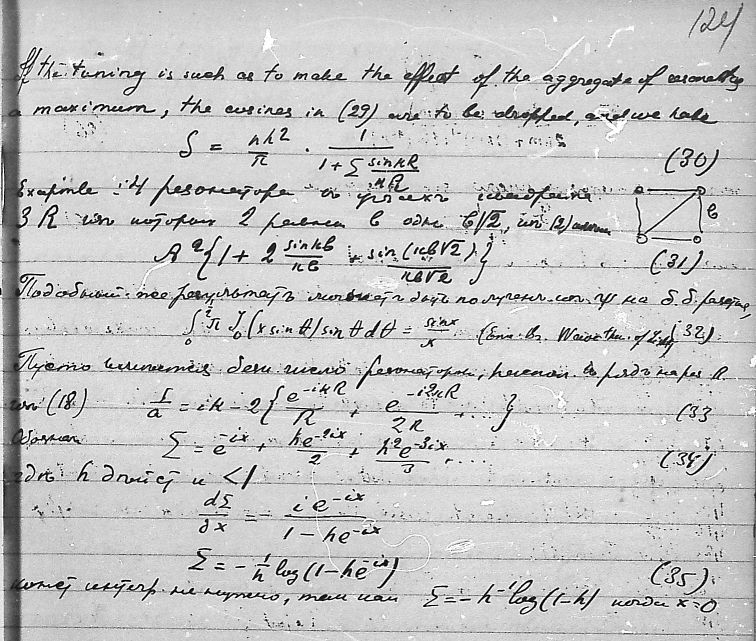 124
If the tuning is such as to make the effect of the aggregate of resonators
a maximum, the cosines in (29) are to be dropped, and we have
S = nλ²/π · 1/(1+Σ sin kR/kR) (30)
4 резонатора в
3 R которых 2 равны b один b√2, (2)
A²{1 + 2 sin kb/kb + sin(kb√2)/kb√2} (31)
Подобный же результат может быть получен на
∫₀^{½π} J₀(x sin θ) sin θ dθ = sin x/x (Enc. Br. Wave th. of Light) (32)
Пусто имеется беск число резонаторов, в ряд на раз R
из (18) 1/a = ik − 2{e^{−ikR}/R + e^{−i2kR}/2R + ...} (33
Обознач Σ = e^{−ix} + he^{−2ix}/2 + h²e^{−3ix}/3 + ... (34)
где h действ и <1
dΣ/dx = − ie^{−ix}/(1 − he^{−ix})
Σ = −1/h log(1 − he^{−ix}) (35)
конст интегр. не нужно, так как Σ = −h⁻¹ log(1−h) когда x=0
b